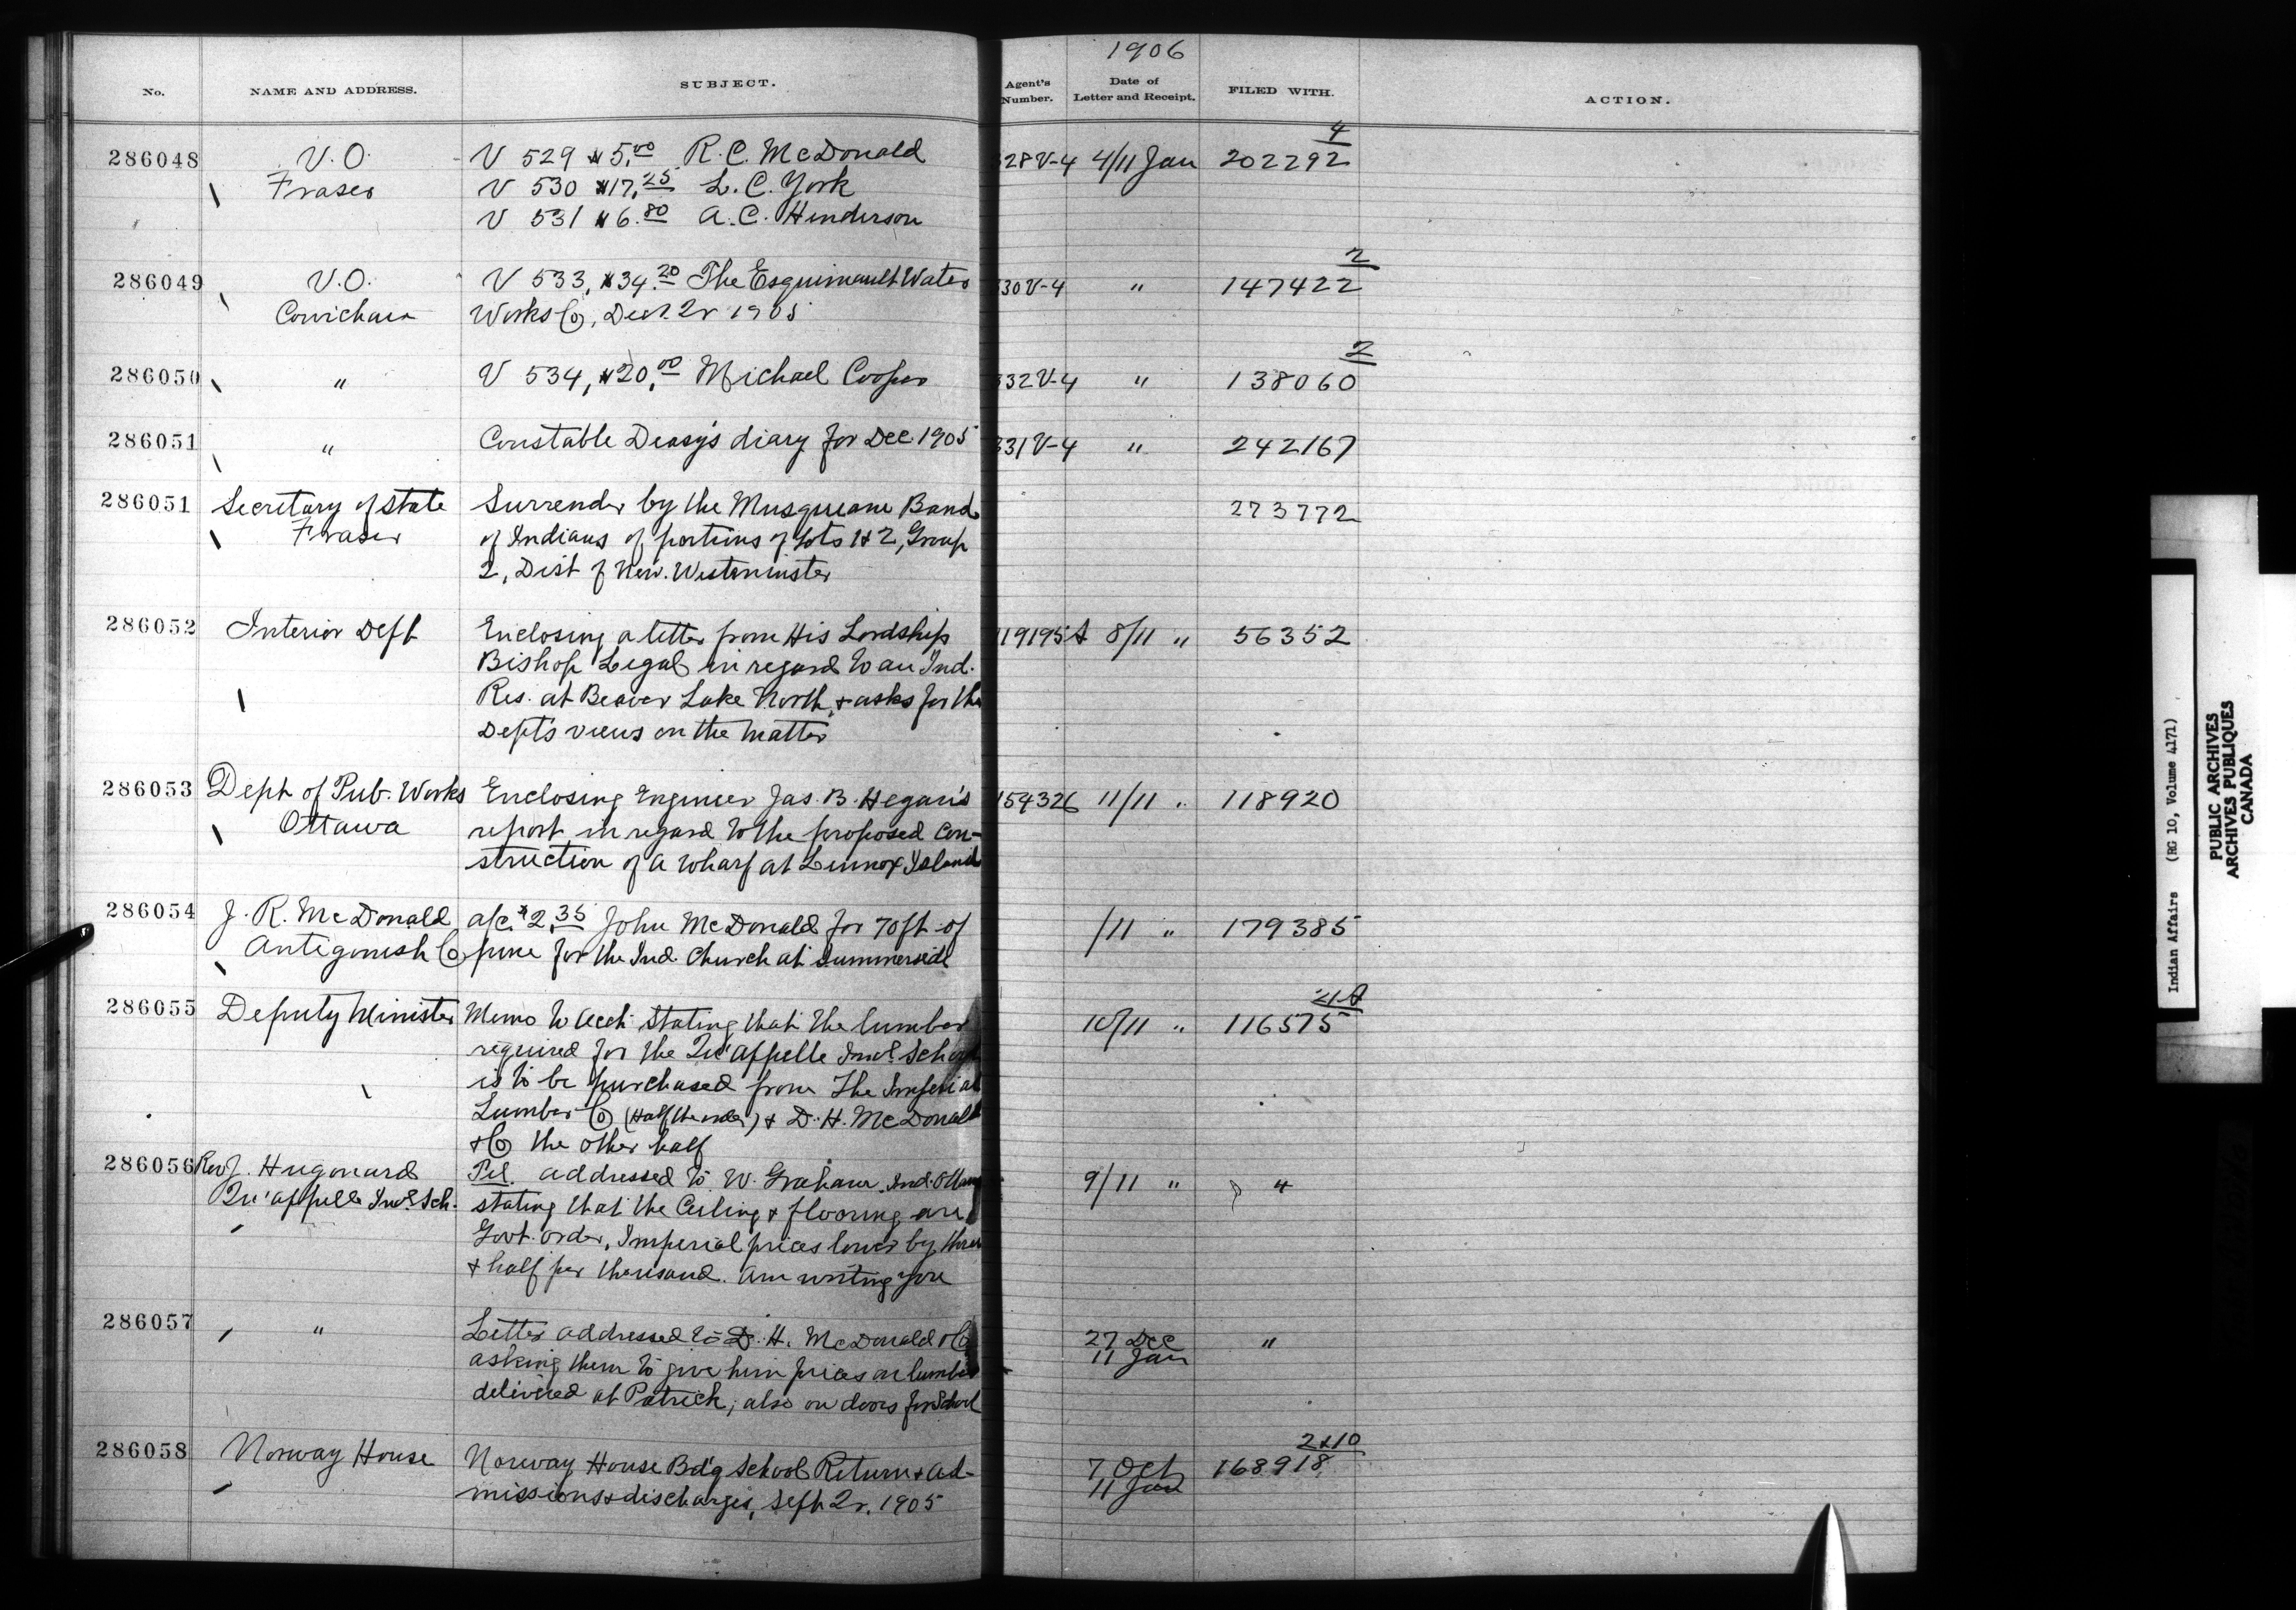 1906
No. NAME AND ADDRESS. SUBJECT. Agent's Number. Date of Letter and Receipt. FILED WITH. ACTION.
286048 V.O. V 529 $5.00 R. C. McDonald 328 V-4 4/11 Jan 202292 4
Fraser V 530 $17.25 L. C. York
V 531 $6.80 A. C. Henderson
286049 V.O. V 533, $34.20 The Esquimault Water 330 V-4 " 147422 2
Cowichan Works Co, Dec. Qr 1905
286050 " V 534, $20.00 Michael Cooper 332 V-4 " 138060 2
286051 " Constable Deasy's diary for Dec 1905 331 V-4 " 242167
286051 Secretary of State Surrender by the Musqueam Band 273772
Fraser of Indians of portions of Lots 1 & 2, Group
2, Dist of New. Westminster
286052 Interior Dept Enclosing a letter from His Lordship 119195 A 8/11 " 56352
Bishop Legal in regard to an Ind.
Res. at Beaver Lake North, & asks for the
Dept's views on the matter
286053 Dept of Pub. Works Enclosing Engineer Jas. B. Hegan's 154326 11/11 " 118920
Ottawa report in regard to the proposed con-
struction of a wharf at Lennox Island
286054 J. R. McDonald a/c. $2.35 John McDonald for 70 ft of /11 " 179385
Antigonish Co pine for the Ind. Church at Summerside
286055 Deputy Minister Memo to Acct. stating that the lumber 10/11 " 116575 21A
required for the Qu'appelle Indl. School
is to be purchased from The Imperial
Lumber Co (Half the order) & D. H. McDonald
& Co the other half
286056 Rev J. Hugonard Tel. addressed to W. Graham, Ind. 9/11 " "
Qu'appelle Indl. Sch. stating that the Ceiling & flooring are
Govt. order, Imperial prices lower by three
& half per thousand. Am writing you
286057 " Letter addressed to D. H. McDonald & Co 27 Dec "
asking them to give him prices on lumber 11 Jan
delivered at Patrick, also on doors for School
286058 Norway House Norway House Bd'g School Return & ad- 7 Oct 168918 2&10
missions & discharges, Sept Qr. 1905 11 Jan
Indian Affairs (RG 10, Volume 4171)
PUBLIC ARCHIVES
ARCHIVES PUBLIQUES
CANADA